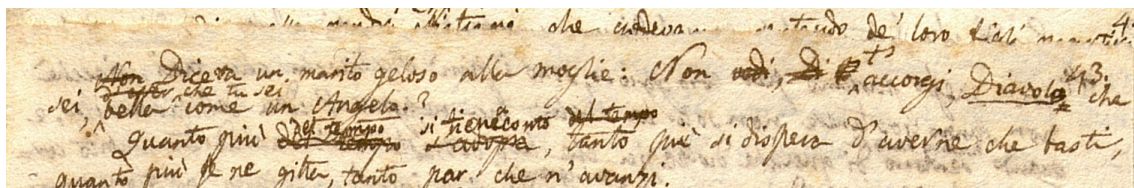 che de' loro
Diceva un marito geloso alla moglie: Non vedi, t'accorgi, Diavolo che
sei, che tu sei
bella come un Angelo?
Quanto più del tempo si tiene a conto, tanto più si dispera d'averne che basti,
quanto più se ne gitta, tanto par che n'avanzi.